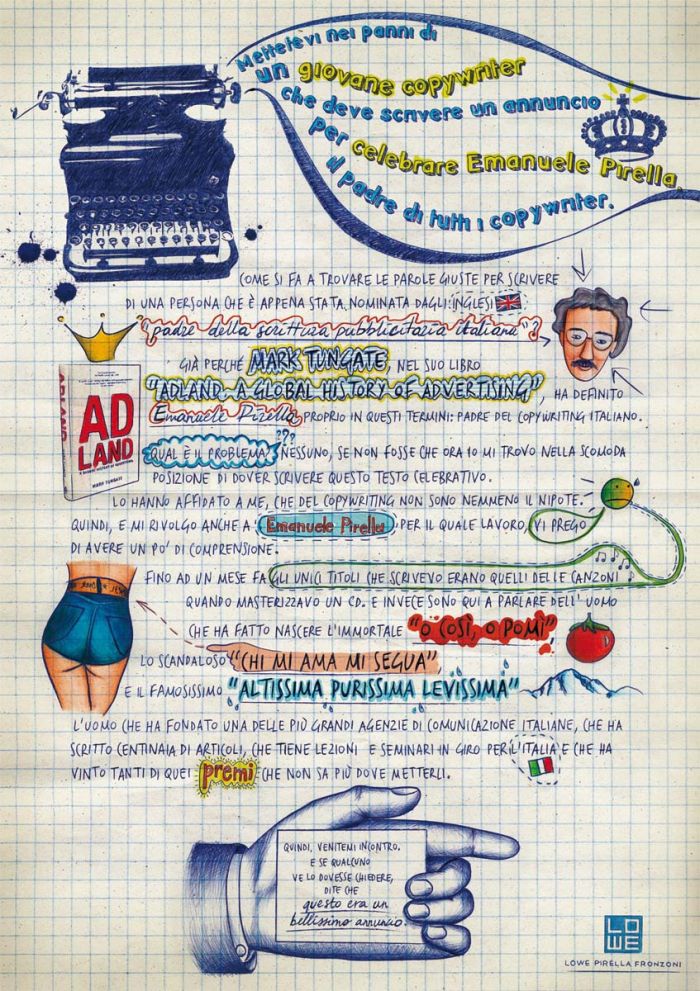 Mettetevi nei panni di
un giovane copywriter
che deve scrivere un annuncio
per celebrare Emanuele Pirella,
il padre di tutti i copywriter.
COME SI FA A TROVARE LE PAROLE GIUSTE PER SCRIVERE
DI UNA PERSONA CHE È APPENA STATA NOMINATA DAGLI INGLESI
"padre della scrittura pubblicitaria italiana"?
GIÀ PERCHÉ MARK TUNGATE, NEL SUO LIBRO
"ADLAND. A GLOBAL HISTORY OF ADVERTISING", HA DEFINITO
Emanuele Pirella PROPRIO IN QUESTI TERMINI: PADRE DEL COPYWRITING ITALIANO.
ADLAND
AD
LAND
A GLOBAL HISTORY OF ADVERTISING
MARK TUNGATE
QUAL È IL PROBLEMA??? NESSUNO, SE NON FOSSE CHE ORA IO MI TROVO NELLA SCOMODA
POSIZIONE DI DOVER SCRIVERE QUESTO TESTO CELEBRATIVO.
LO HANNO AFFIDATO A ME, CHE DEL COPYWRITING NON SONO NEMMENO IL NIPOTE.
QUINDI, E MI RIVOLGO ANCHE A Emanuele Pirella PER IL QUALE LAVORO, VI PREGO
DI AVERE UN PO' DI COMPRENSIONE.
FINO AD UN MESE FA GLI UNICI TITOLI CHE SCRIVEVO ERANO QUELLI DELLE CANZONI
QUANDO MASTERIZZAVO UN CD. E INVECE SONO QUI A PARLARE DELL'UOMO
CHE HA FATTO NASCERE L'IMMORTALE "O COSÌ, O POMÌ"
LO SCANDALOSO "CHI MI AMA MI SEGUA",
E IL FAMOSISSIMO "ALTISSIMA PURISSIMA LEVISSIMA"
L'UOMO CHE HA FONDATO UNA DELLE PIÙ GRANDI AGENZIE DI COMUNICAZIONE ITALIANE, CHE HA
SCRITTO CENTINAIA DI ARTICOLI, CHE TIENE LEZIONI E SEMINARI IN GIRO PER L'ITALIA E CHE HA
VINTO TANTI DI QUEI premi CHE NON SA PIÙ DOVE METTERLI.
QUINDI, VENITEMI INCONTRO.
E SE QUALCUNO
VE LO DOVESSE CHIEDERE,
DITE CHE
questo era un
bellissimo annuncio.
LO
WE
LOWE PIRELLA FRONZONI